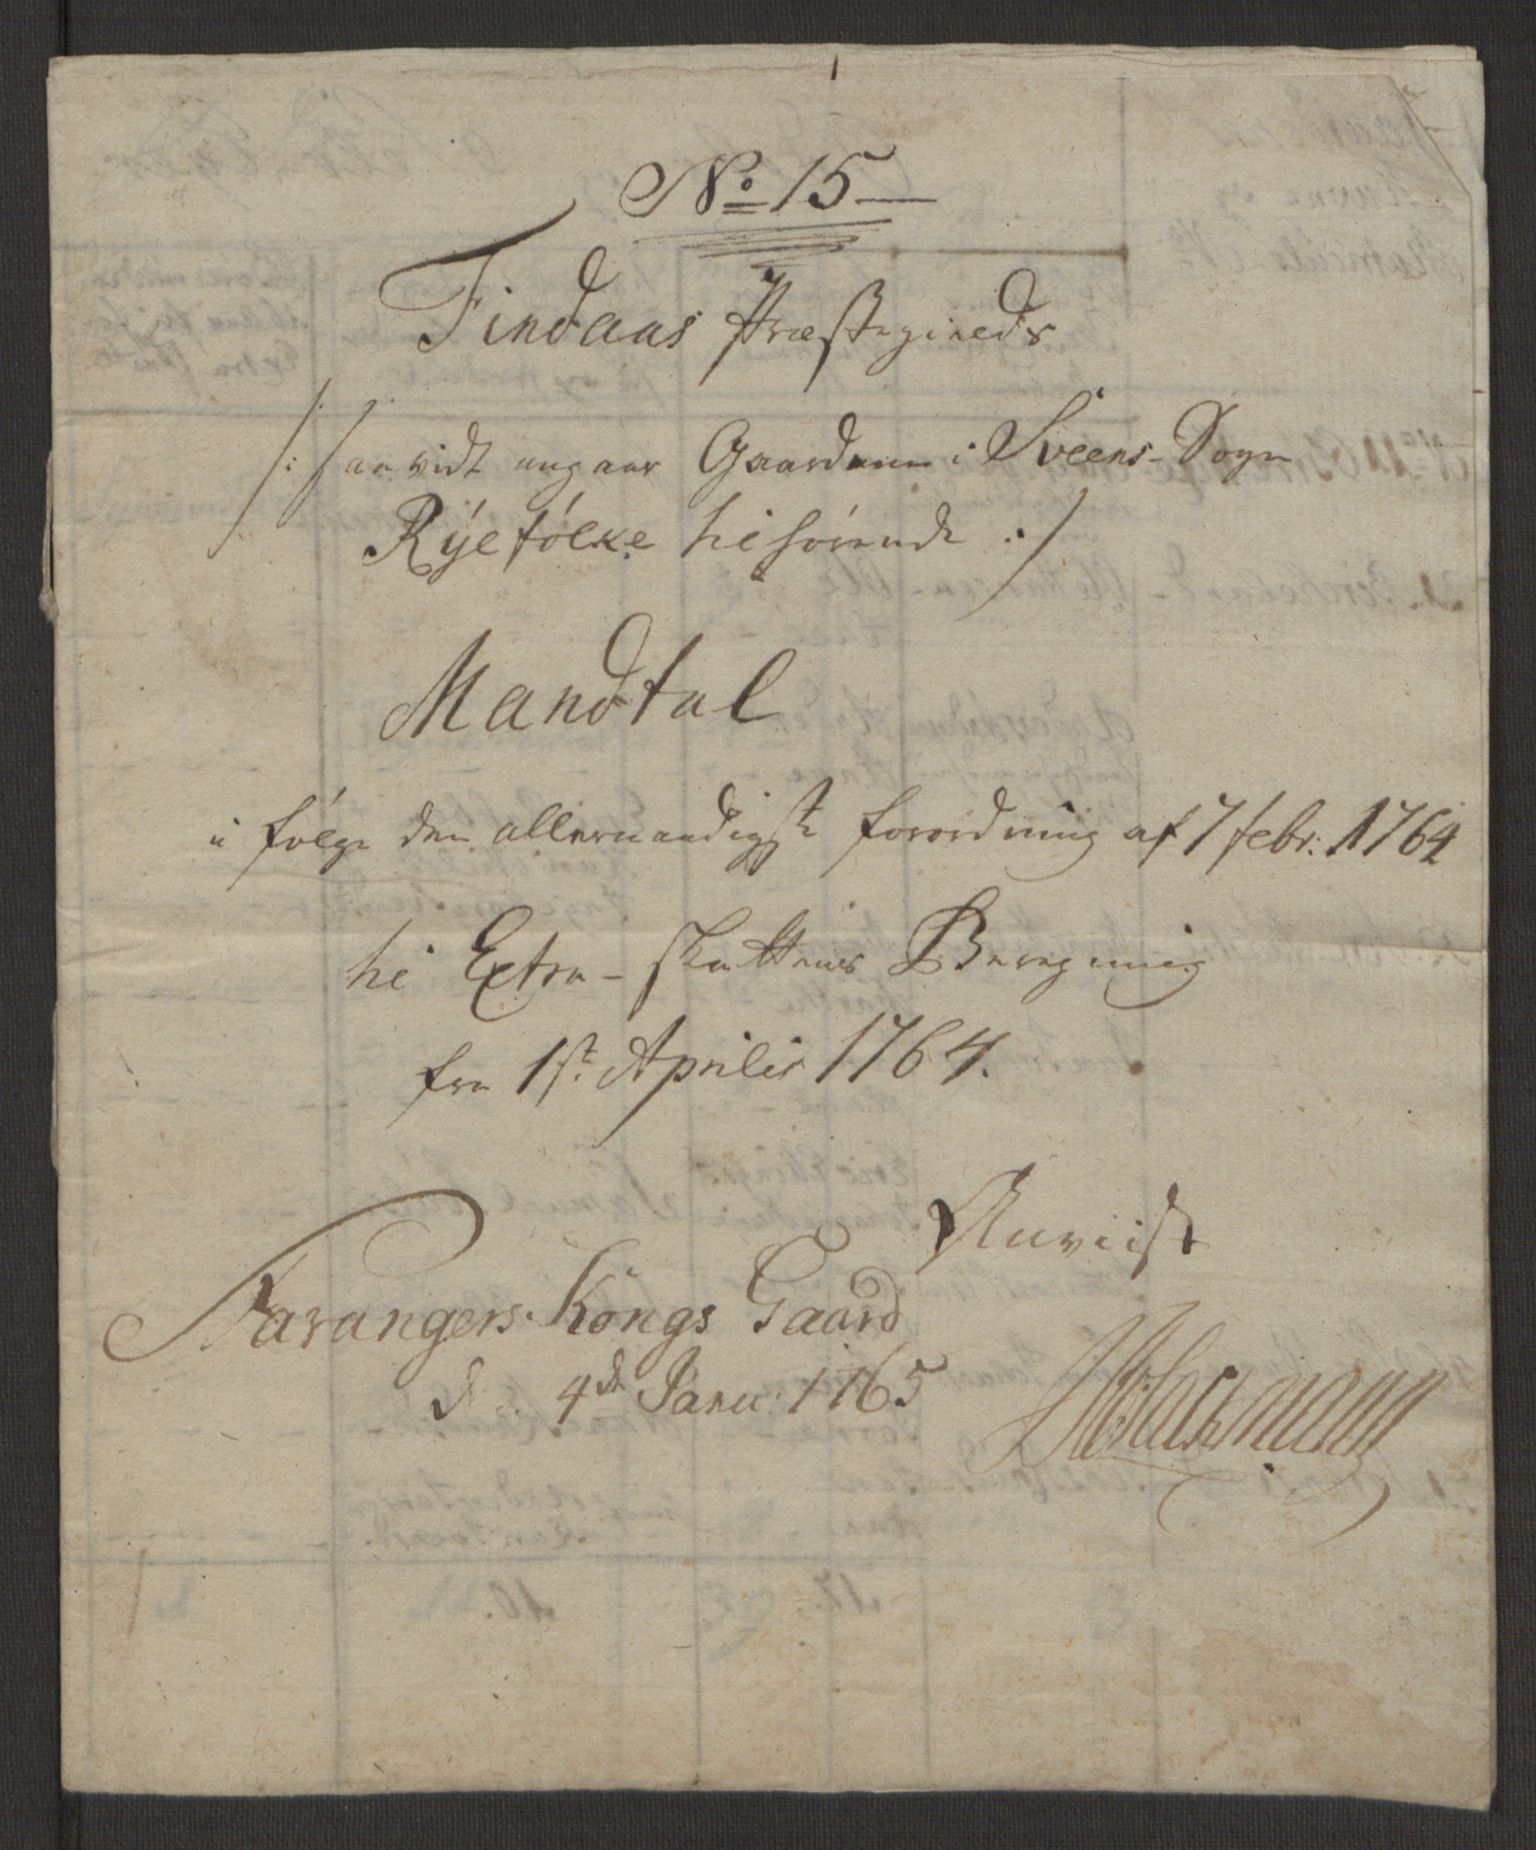 No 15
Findaas Præstegields
/: saa vidt angaar Gaardene i Sveens Sogn
Ryefölke tilhörende :/
Mandtal
i fölge den allernaadigste forordning af 7 febr: 1764
til Extra-skattens Beregning
fra 1st Aprilis 1764.
Anviist
Stavangers Kongs Gaard
d. 4de Janu: 1765